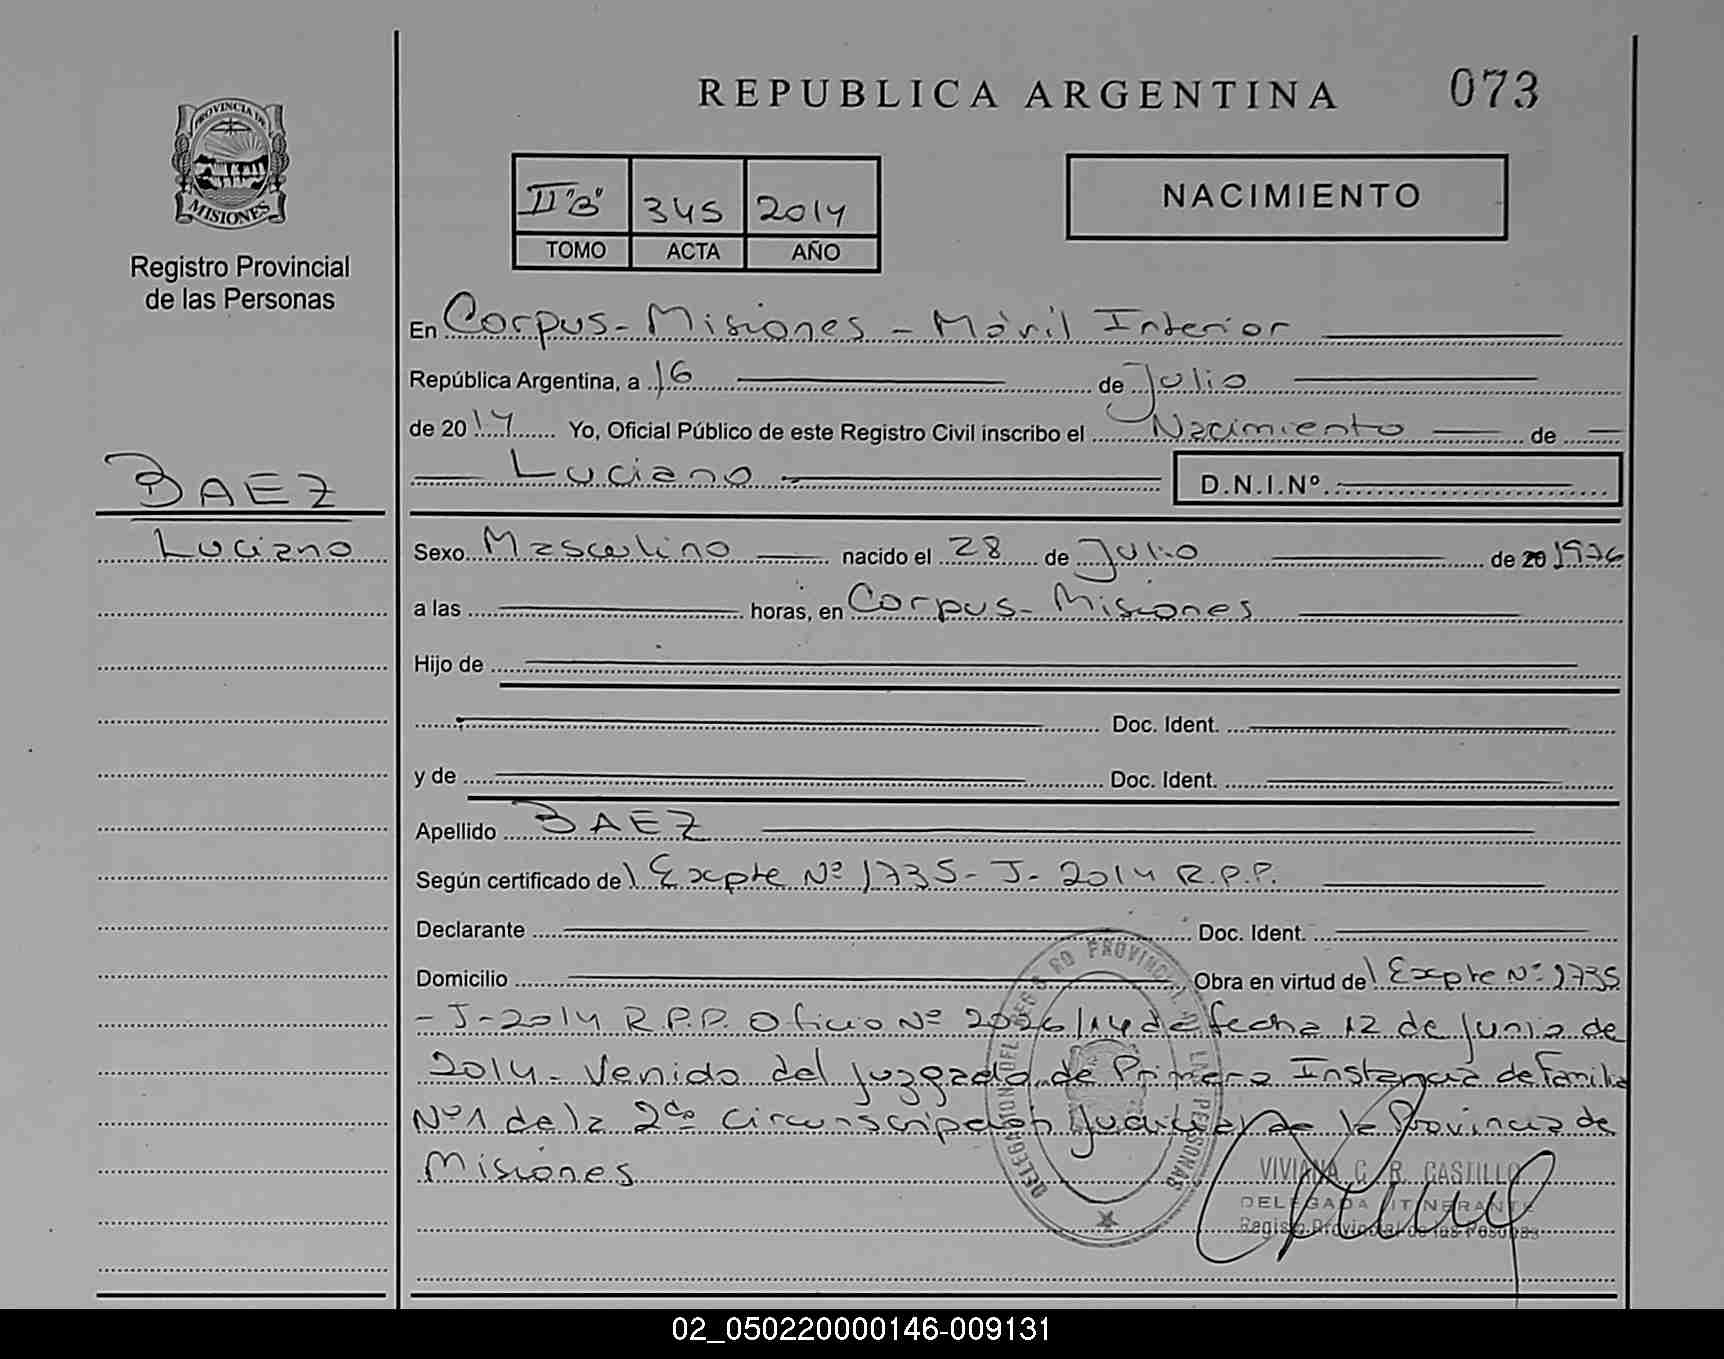 REPUBLICA ARGENTINA 073
PROVINCIA DE
MISIONES
Registro Provincial
de las Personas
II "B" 345 2014
TOMO ACTA AÑO
NACIMIENTO
En Corpus - Misiones - Móvil Interior
República Argentina, a 16 de Julio
de 2014 Yo, Oficial Público de este Registro Civil inscribo el Nacimiento de
Luciano D.N.I.Nº
BAEZ
Luciano
Sexo Masculino nacido el 28 de Julio de 20 1976
a las horas, en Corpus - Misiones
Hijo de
Doc. Ident.
y de Doc. Ident.
Apellido BAEZ
Según certificado del Expte Nº 1735 - J - 2014 R.P.P.
Declarante Doc. Ident.
Domicilio Obra en virtud del Expte Nº 1735
- J - 2014 R.P.P. Oficio Nº 2026/14 de fecha 12 de Junio de
2014 - Venido del Juzgado de Primera Instancia de Familia
Nº 1 de la 2da Circunscripción Judicial de la Provincia de
Misiones
VIVIANA C. R. CASTILLO
DELEGADA ITINERANTE
Registro Provincial de las Personas
02_050220000146-009131